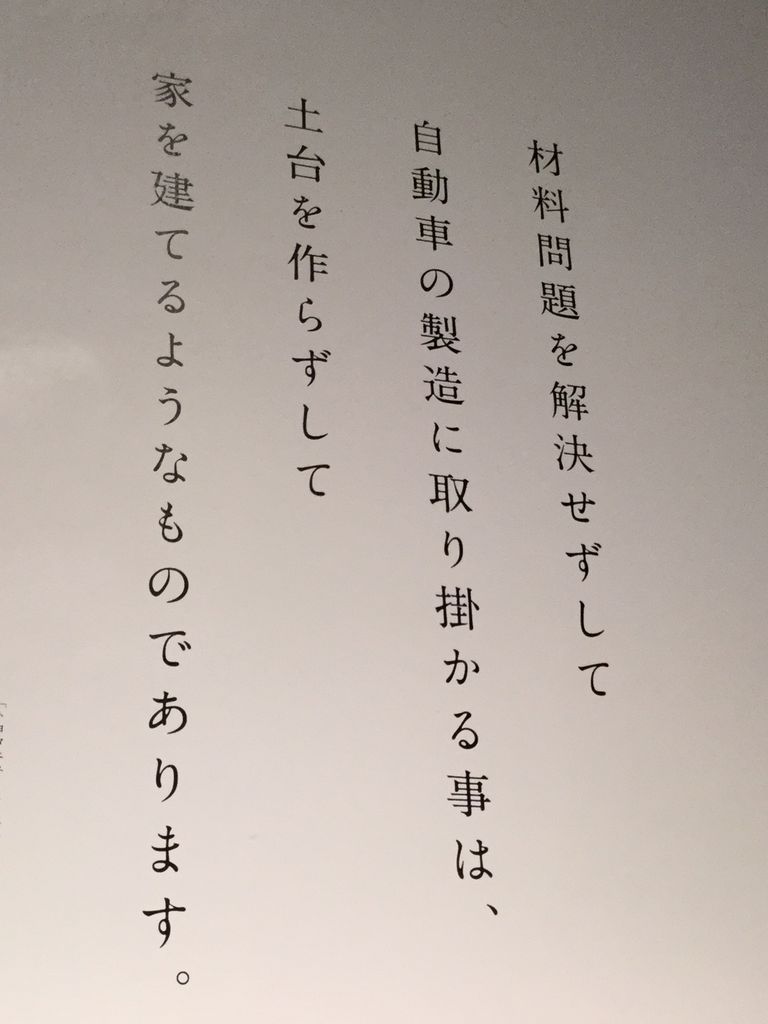 材料問題を解決せずして
自動車の製造に取り掛かる事は、
土台を作らずして
家を建てるようなものであります。